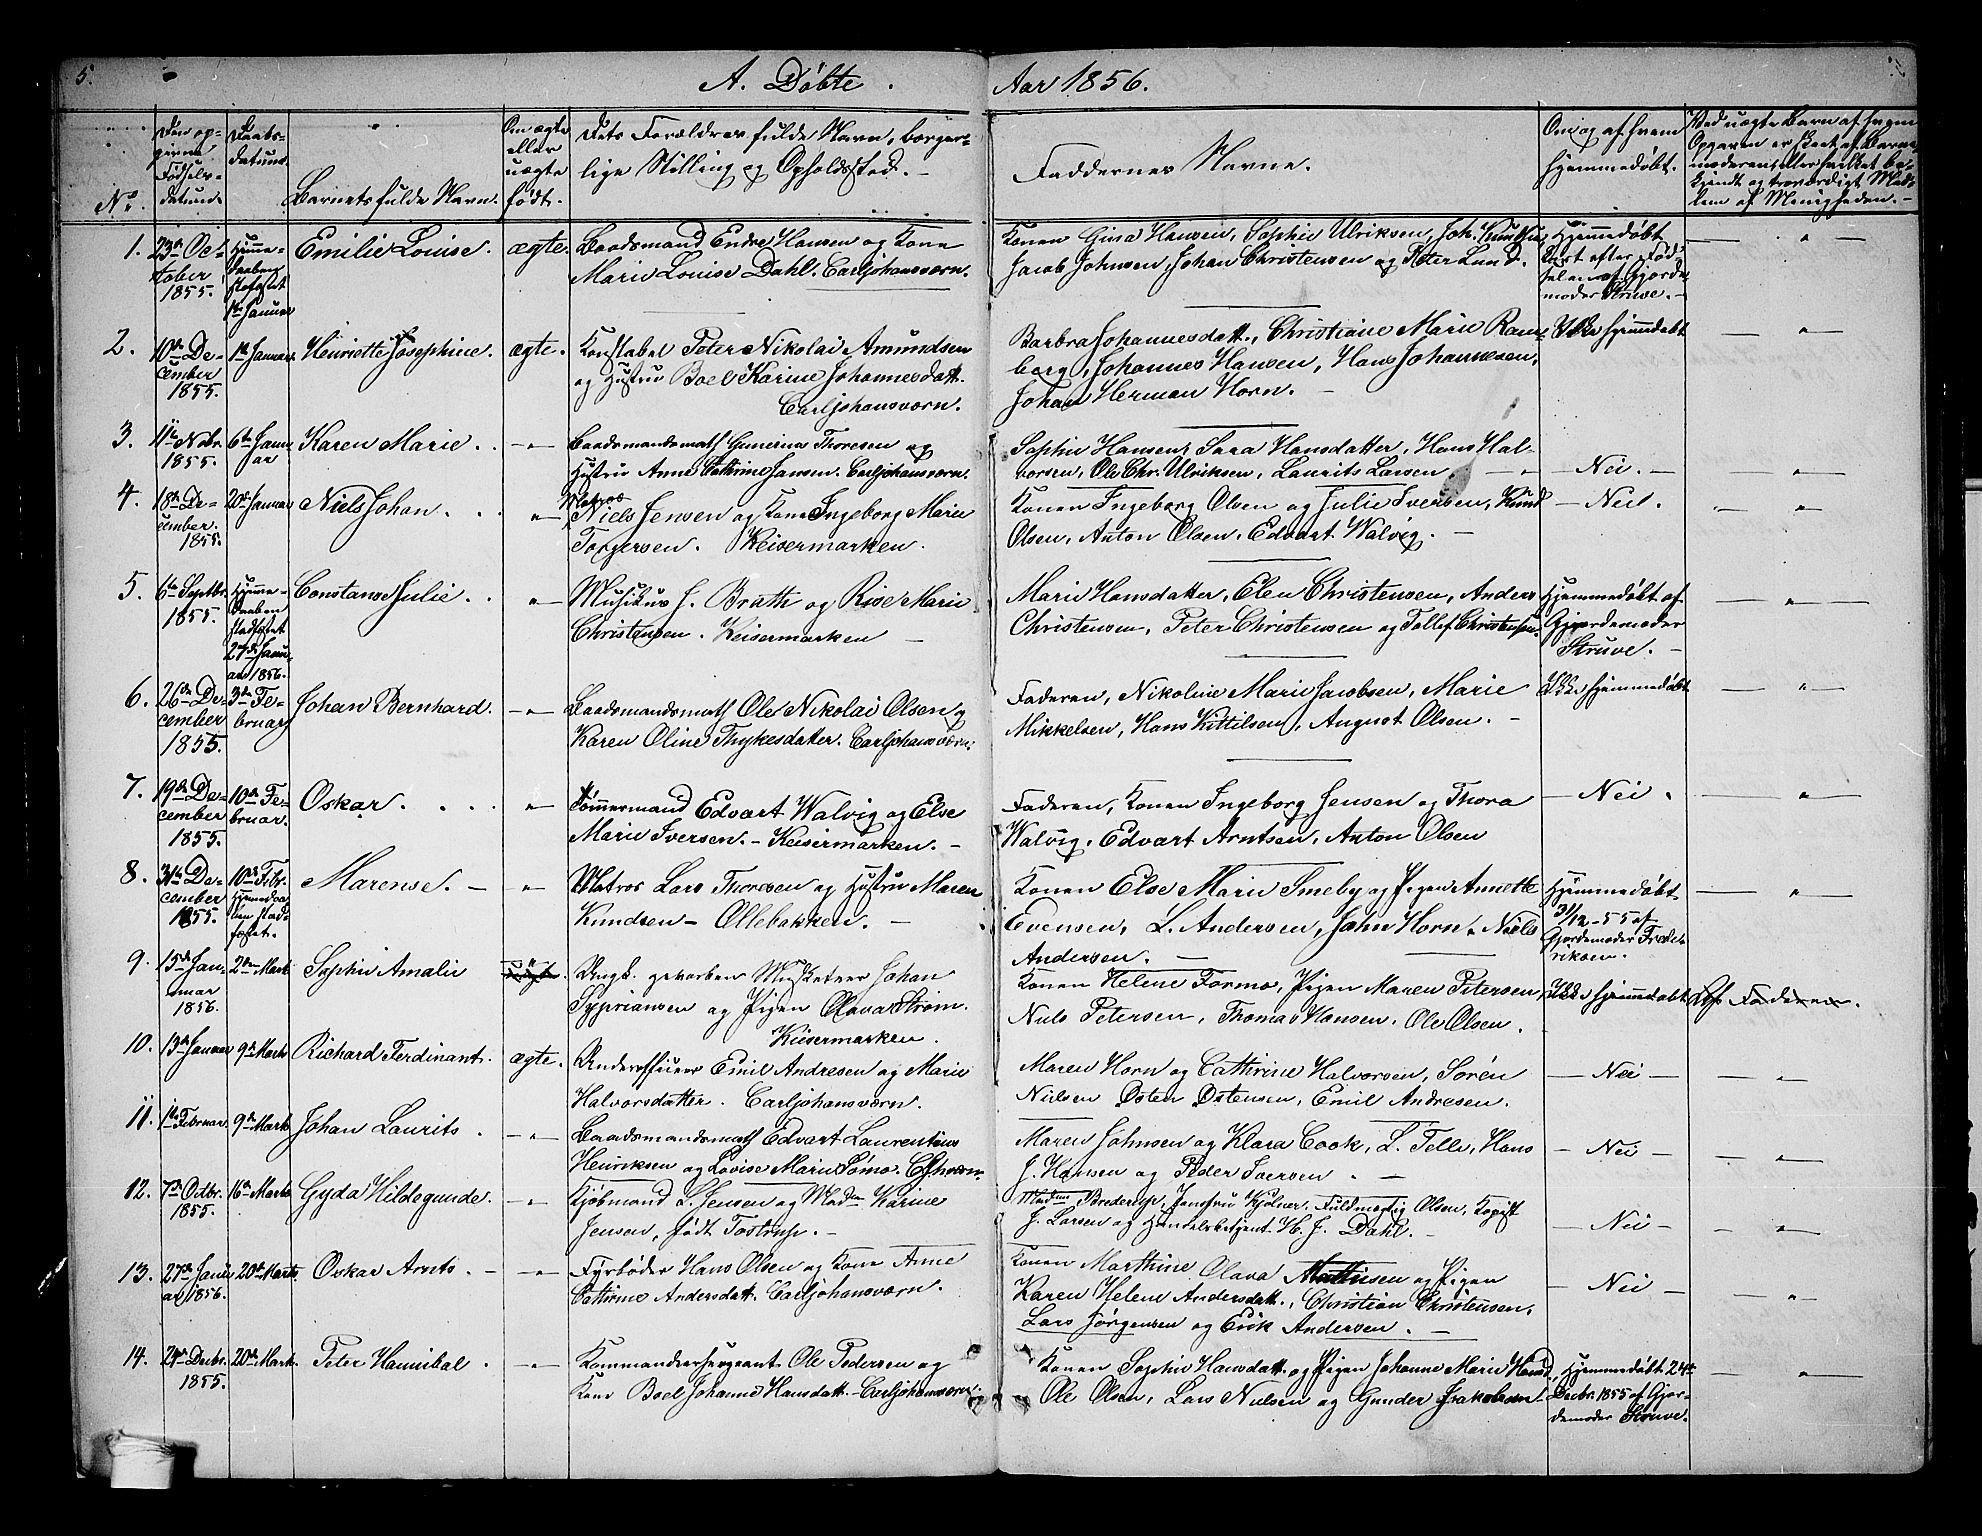 5.
A. Døbte.
Aar 1856.
No.
Den op-
givne
Fødsels-
datum.
Daabs-
datum.
Barnets fulde Navn.
Om ægte
eller
uægte
født.
Dets Forældres fulde Navn, borger-
lige Stilling og Opholdssted. -
Faddernes Navne.
Om og af hvem
hjemmedøbt.
Ved uægte Barn af hvem
Opgaven er skeet af Barne-
moderen eller hvilket be-
kjendt og troværdigt Med-
lem af Menigheden. -
1.
23de Oc-
tober
1855.
Hjemme-
daaben
stafæstet
1ste Januar
Emilie Louise.
ægte.
Baadsmand Endre Hansen og Kone
Marie Louise Dahl. Carljohansværn.
Konen Gina Hansen, Sophie Ulriksen, Joh.
Jacob Johnsen, Johan Christensen og Peter Lund.
Hjemmedøbt
kort efter Fød-
selen af Gjorde-
moder Struve. -
2.
10de De-
cember
1855.
1ste Januar
Henriette Josephine.
ægte.
Konstabel Peter Nikolai Amundsen
og Hustru Boel Karine Johannesdatt.
Carljohansværn.
Barbra Johannesdatt., Christiane Marie Ram-
berg, Johannes Hansen, Hans Johannesen,
Johan Herman Horn. -
Ikke hjemmedøbt
3.
11te Nobr.
1855.
6te Janu-
ar
Karen Marie.
Baadsmandsmath Thoresen og
Hustru Anne Cathrine Jansen. Carljohansværn.
Sophie Hansen, Sara Hansdatter, Hans Hal-
vorsen, Ole Chr. Ulriksen, Laurits Larsen
- Nei. -
4.
18de De-
cember.
1855.
20de Januar
Niels Johan.
Matros
Niels Jensen og Kone Ingeborg Marie
Torgersen. Keisermarken.
Konen Ingeborg Olsen og Julie Iversen, Knud
Olsen, Anton Olsen, Edvart Walvig. -
- Nei.
5.
6te Septbr.
1855.
Hjemme-
daaben
stadfæstet
27de Janu-
ar 1856.
Constanse Julie.
Musikus J. Brath og Rise Marie
Christensen. Keisermarken -
Marie Hansdatter, Elen Christensen, Anders
Christensen, Peter Christensen og Tollef Christensen.
Hjemmedøbt af
Gjordemoder
Struve. -
6.
26de De-
cember
1855.
3de Fe-
bruar
Johan Bernhard.
Baadsmandsmath Ole Nikolai Olsen og
Karen Oline Thykesdatter. Carljohansværn.
Faderen, Nikoline Marie Jacobsen, Marie
Mikkelsen, Hans Kittilsen, August Olsen. -
Ikke hjemmedøbt
7.
19de De-
cember
1855.
10de Fe-
bruar.
Oskar.
Tømmermand Edvart Walvig og Else
Marie Iversen. - Keisermarken. -
Faderen, Konen Ingeborg Jensen og Thora
Walvig, Edvart Arntsen, Anton Olsen
- Nei.
8.
31te De-
cember
1855.
10de Febr.
Hjemmedaa-
ben stad-
fæstet.
Marense. -
Matros Lars Thoresen og Hustru Maren
Knudsen - Ollebakken. -
Konen Else Marie Smeby og Pigen Annette
Evensen, L. Andersen, John Horn, Niels
Andersen. -
Hjemmedøbt
31/12 - 55 af
Gjordemoder Frede-
riksen.
9.
15de Jan-
uar
1856.
2den Mart
Sophie Amalie
Ungk. gevorben Musketeer Johan
Sypriansen og Pigen Olava Strøm.
Keisermarken.
Konen Helene Formo, Pigen Maren Petersen,
Niels Petersen, Thomas Hansen, Ole Olsen.
Ikke hjemmedøbt
Af Faderen.
10.
13de Januar
9de Marts
Richard Ferdinant.
ægte.
Underofficeer Emil Andresen og Marie
Halvorsdatter. Carljohansværn.
Maren Horn og Cathrine Halvorsen, Søren
Nielsen Østen Østensen, Emil Andresen.
- Nei -
11.
1ste Februar.
9de Marts
Johan Laurits.
Baadsmandsmath Edvart Laurentius
Henriksen og Lovise Marie Sømo.
Maren Johnsen og Klara Cook, L. Telle, Hans
J. Hansen og Peder Iversen. -
- Nei -
12.
7de Octbr.
1855.
16de Marts
Gyda Hildegunde.
Kjøbmand L. Jensen og Madm Karine
Jensen, født Tostrup. -
Madm Brodersen, Jomfru Kjølner, Fuldmægtig Olsen, Kopist
J. Larsen og Handelsbetjent H. J. Dahl. -
- Nei -
13.
27de Janu-
ar 1856.
20de Marts
Oskar Arnts.
Fyrbøder Hans Olsen og Kone Anne
Cathrine Andersdatt. Carljohansværn.
Konen Marthine Olava og Pigen
Karen Helene Andersdatt., Christian Christensen,
Lars Jørgensen og Erik Andersen. -
- Nei -
14.
24de Decbr.
1855.
20de Mart.
Peter Hannibal.
Kommandeersergeant Ole Pedersen og
Kone Boel Johanne Hansdatt. - Carljohansværn.
Konen Sophie Hansdatt. og Pigen Johanne Marie
Ole Olsen, Lars Nielsen og Gunder Jsaksen
Hjemmedøbt 24de
Decbr. 1855 af Gjor-
demoder Struve.